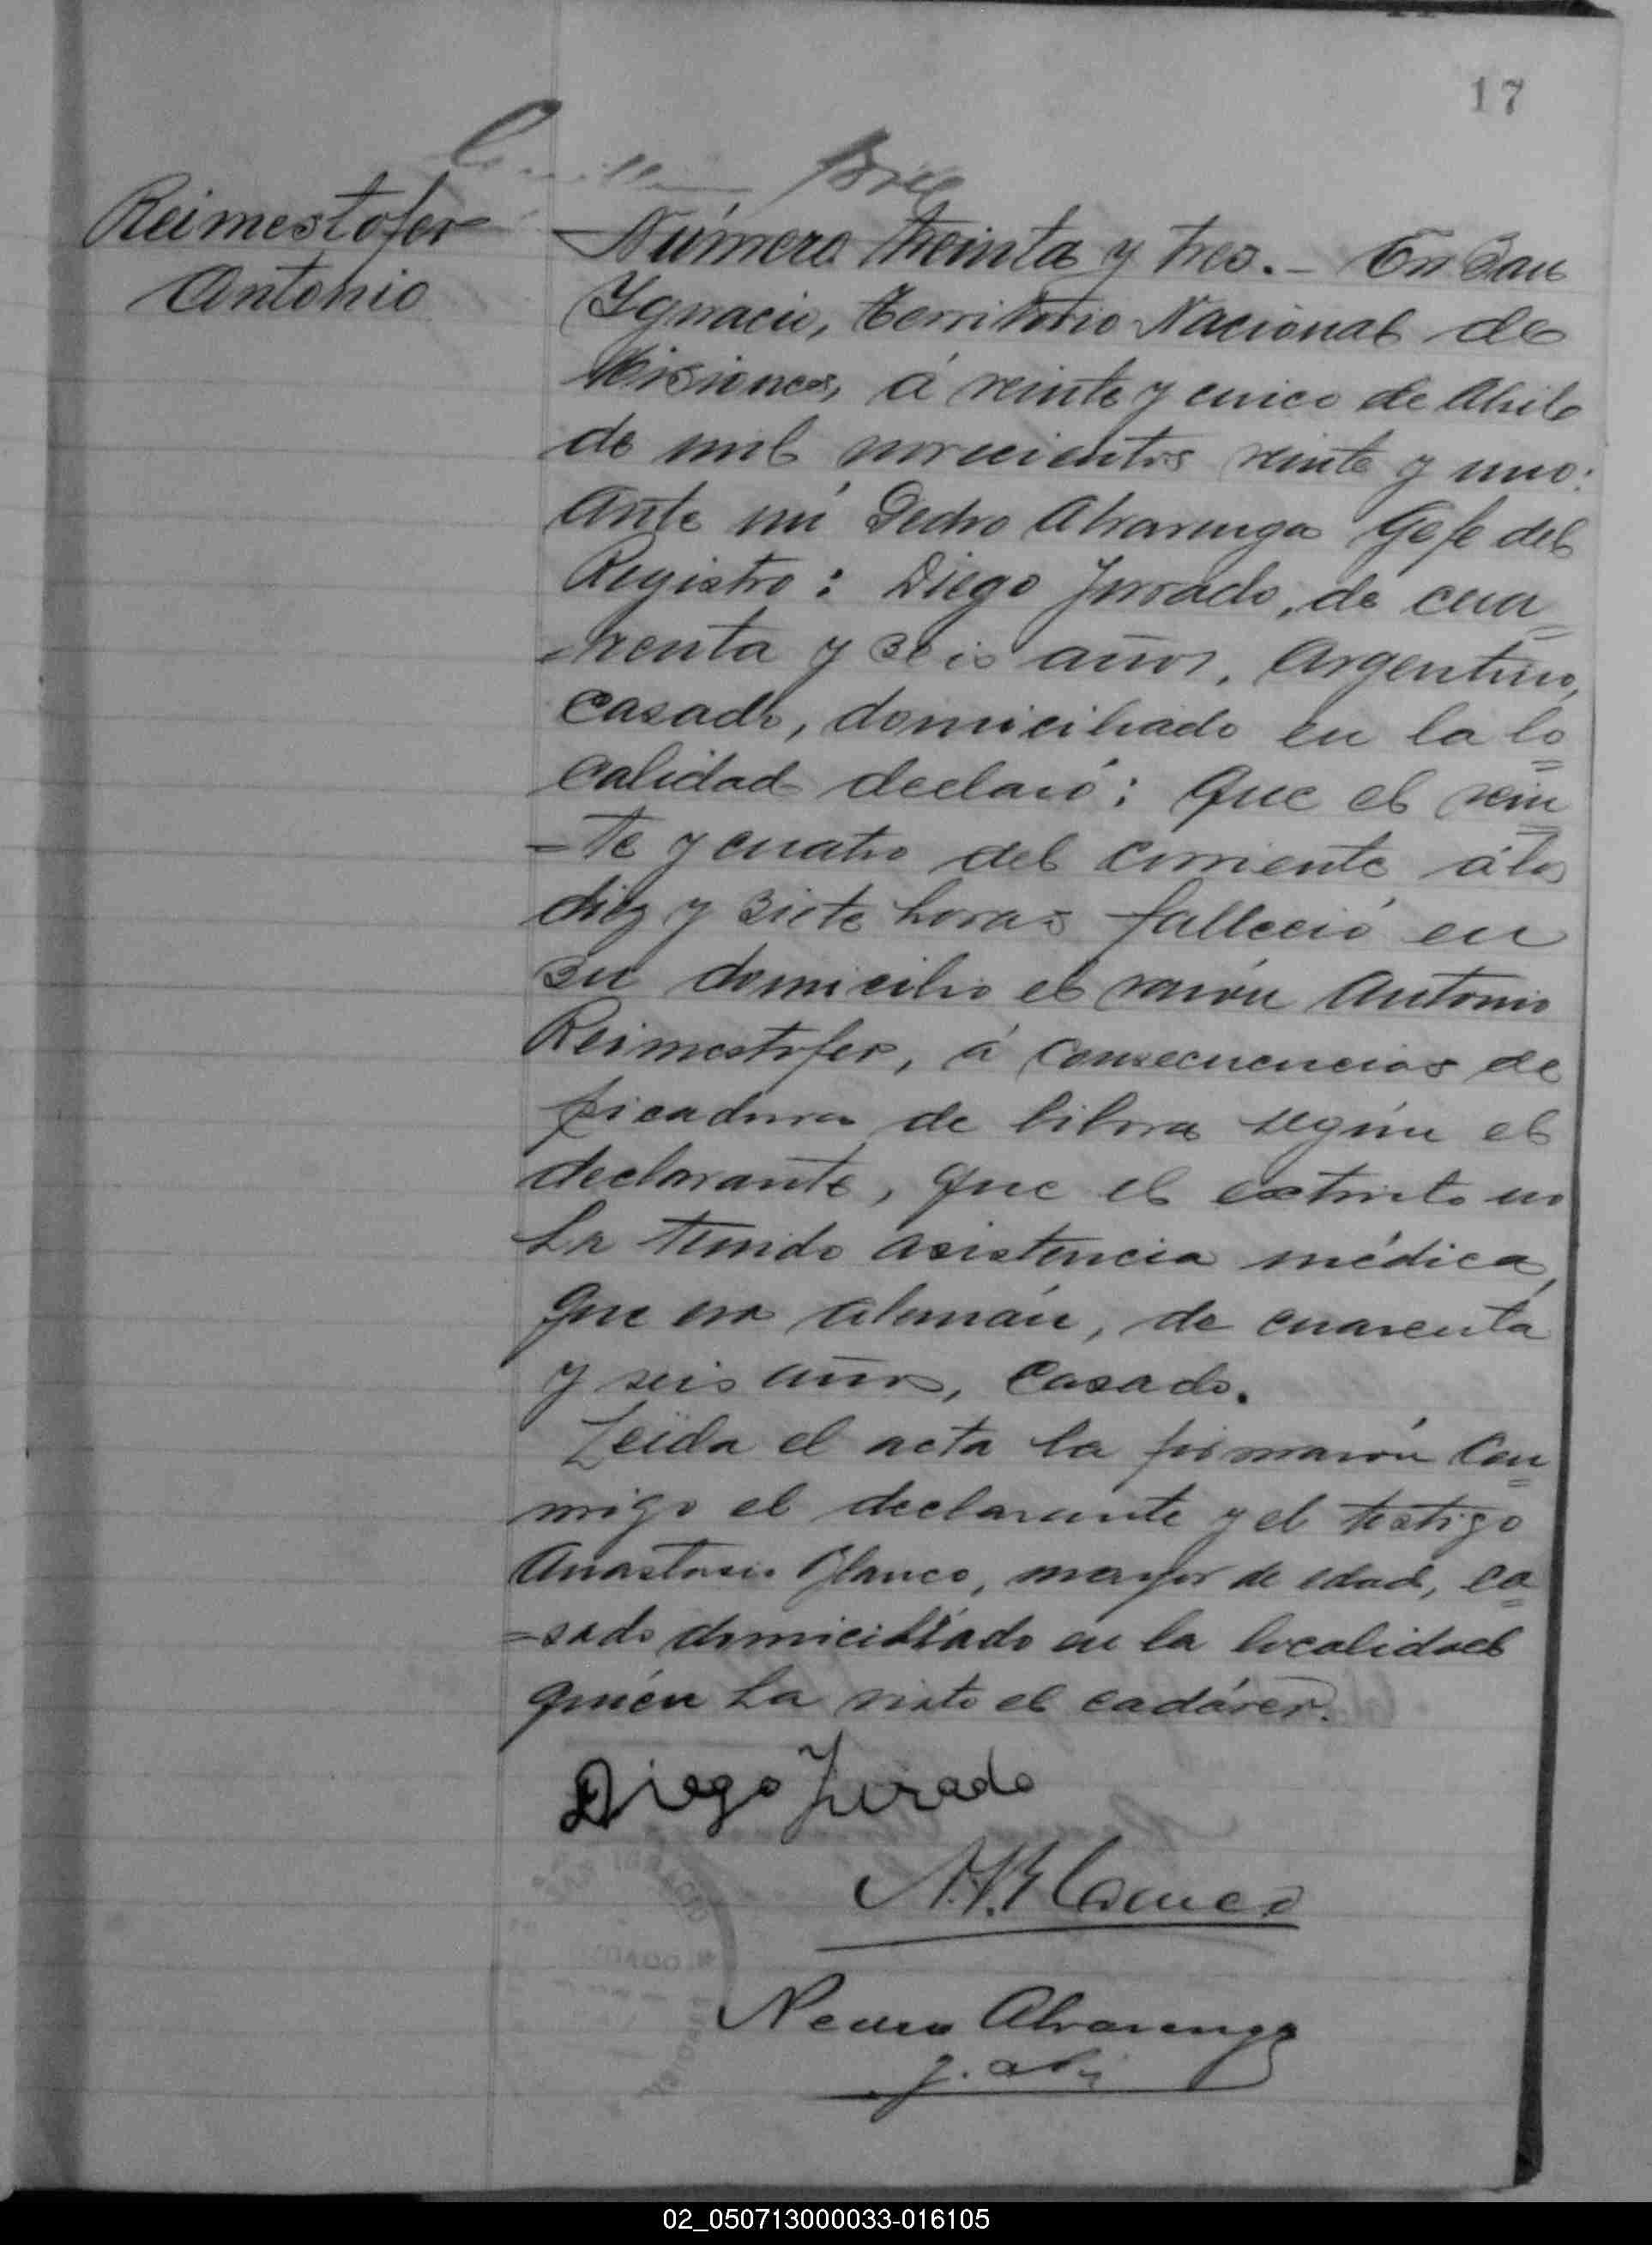 17
Reimestofer
Antonio
Número treinta y tres. - En San
Ygnacio, territorio Nacional de
Misiones, á veinte y cinco de Abril
de mil novecientos veinte y uno:
Ante mí Pedro Alvarenga Gefe del
Registro: Diego Jurado, de cua=
=renta y seis años, Argentino,
casado, domiciliado en la lo=
calidad declaró: Que el vein=
=te y cuatro del corriente á las
diez y siete horas falleció en
su domicilio el varón Antonio
Reimestofer, á consecuencias de
picadura de bibora según el
declarante, que el extinto no
ha tenido asistencia médica,
que era alemán, de cuarenta
y seis años, casado.
Leída el acta la firmarón con=
migo el declarante y el testigo
Anastasio Blanco, mayor de edad, ca=
=sado domiciliado en la localidad
quién ha visto el cadáver.
Diego Jurado
A. Blanco
Pedro Alvarenga
02_050713000033-016105